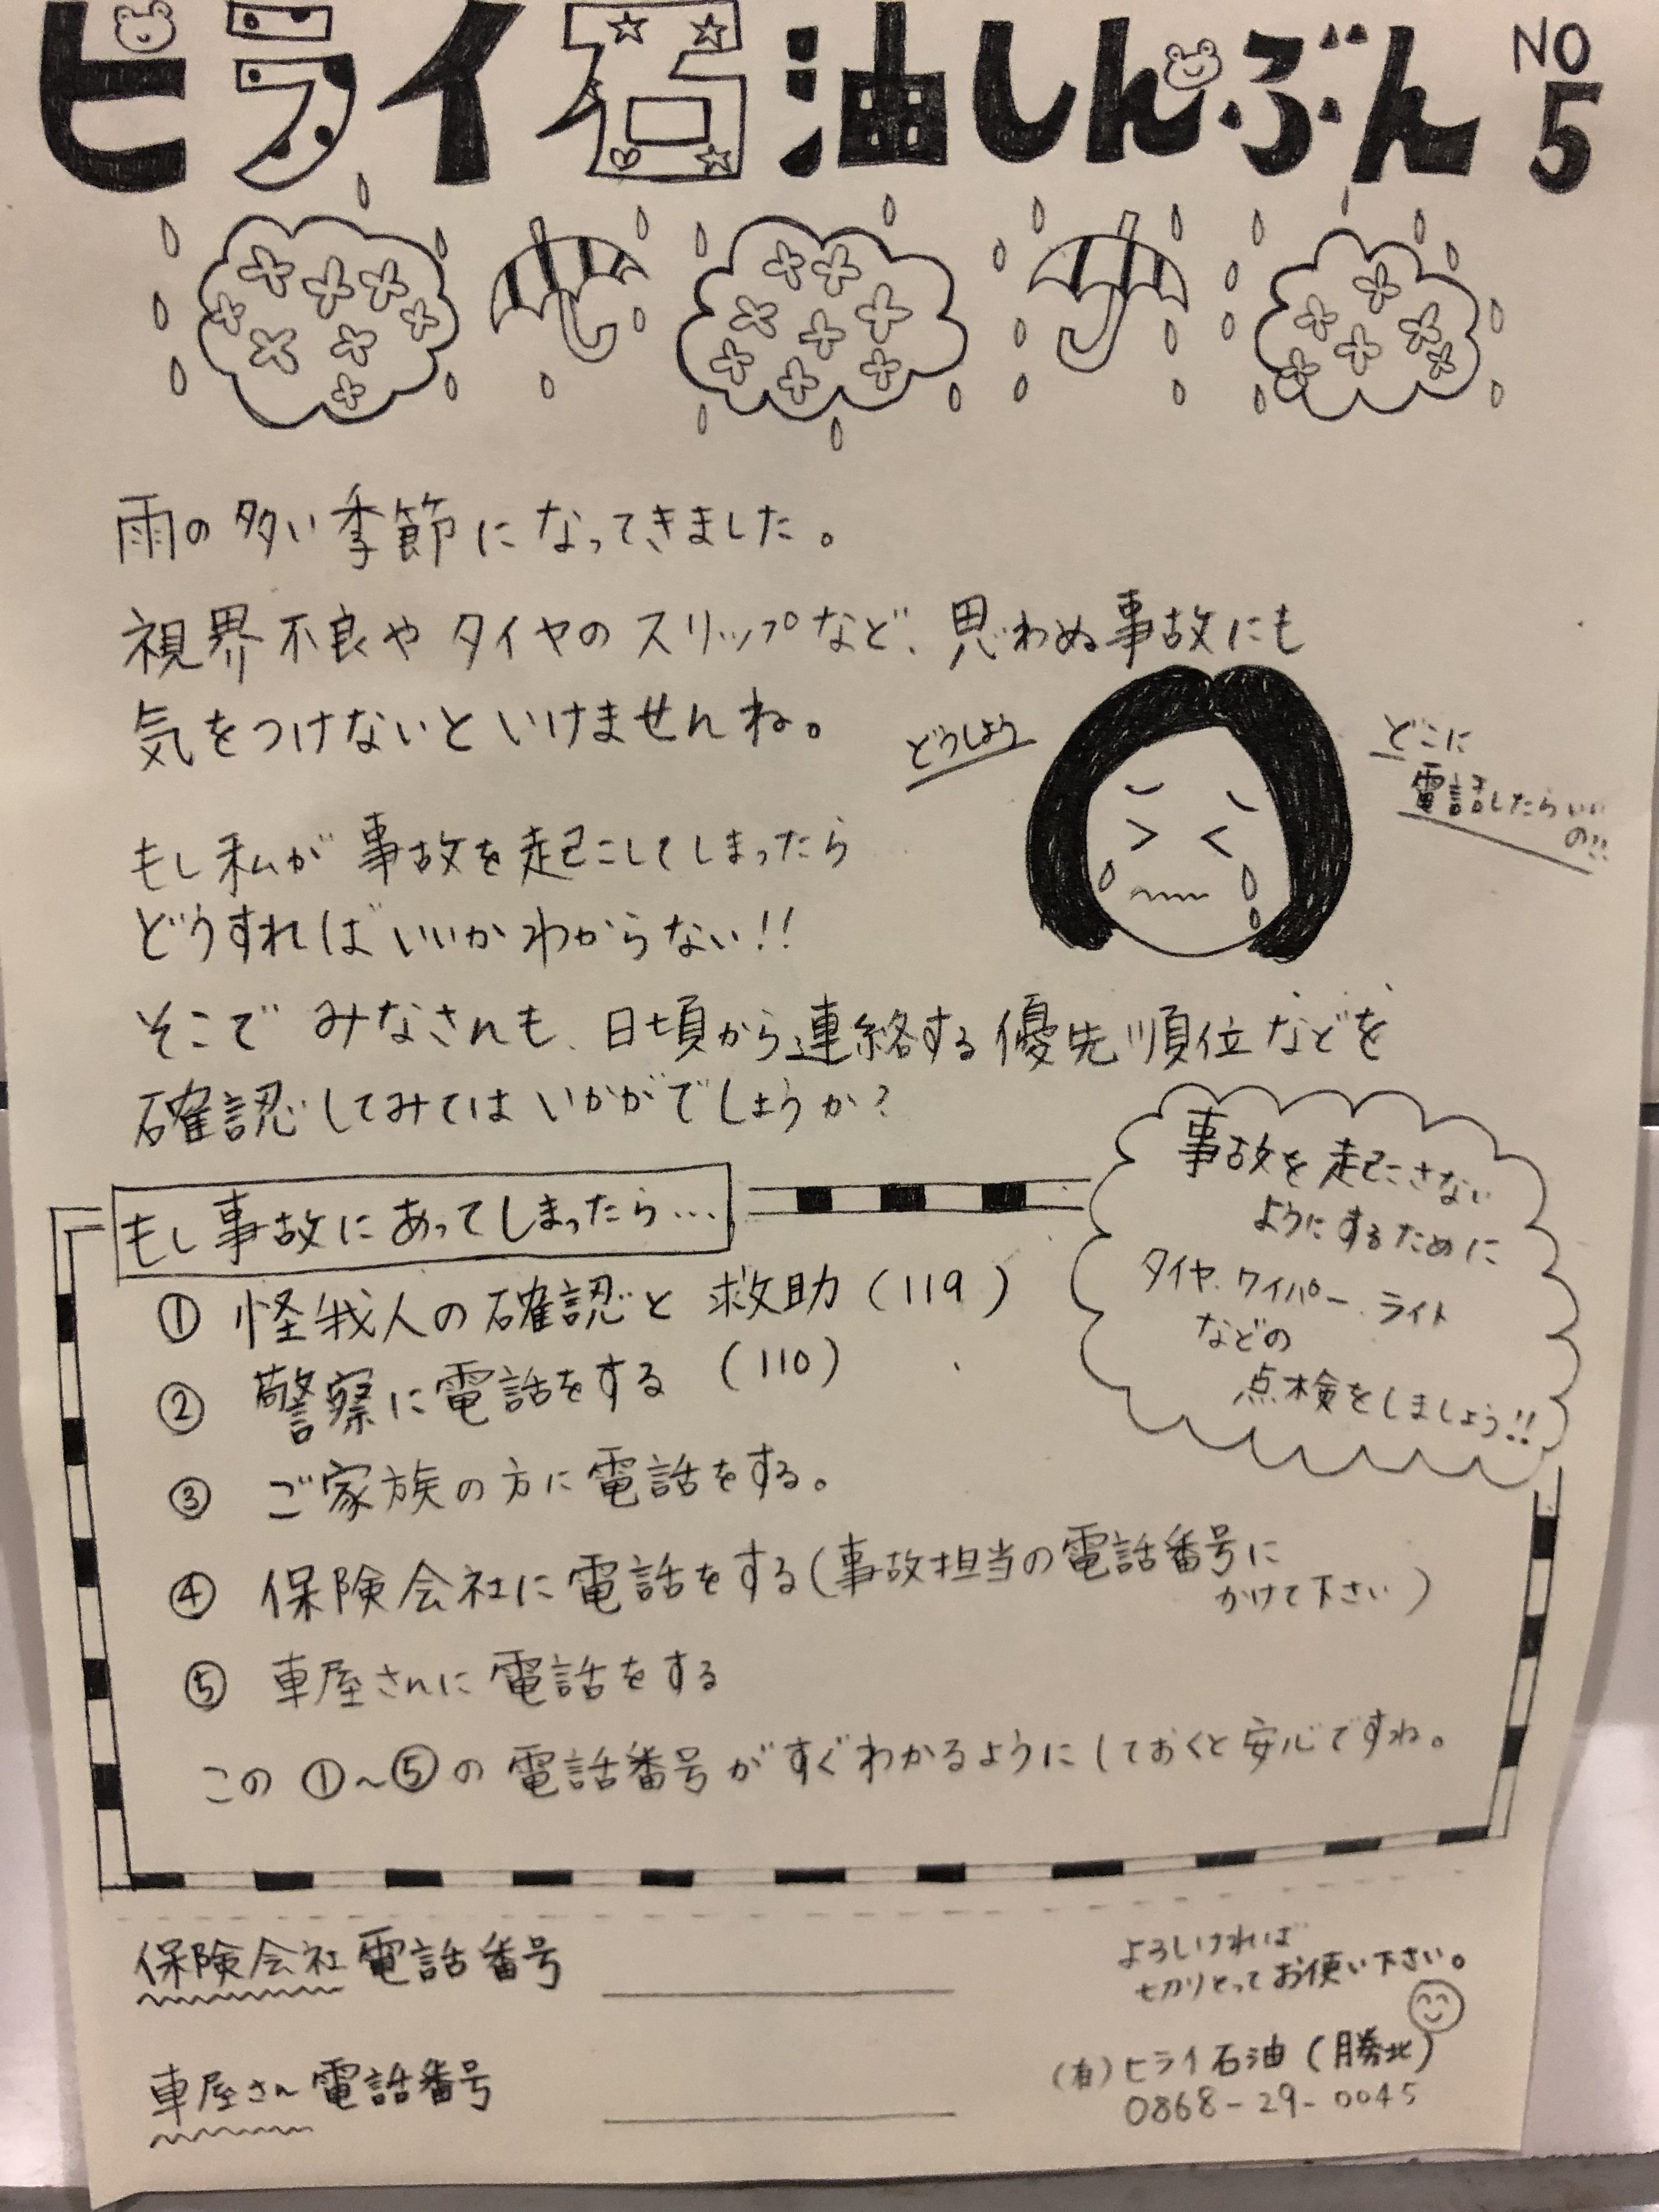 ヒライ石油しんぶん NO 5
雨の多い季節になってきました。
視界不良やタイヤのスリップなど、思わぬ事故にも
気をつけないといけませんね。
どうしよう
どこに
電話したらいい
の!!
もし私が事故を起こしてしまったら
どうすればいいかわからない!!
そこで みなさんも、日頃から連絡する優先順位などを
確認してみてはいかがでしょうか?
事故を起こさない
ようにするために
タイヤ、ワイパー、ライト
などの
点検をしましょう!!
もし事故にあってしまったら…
① 怪我人の確認と救助(119)
② 警察に電話をする (110)
③ ご家族の方に電話をする。
④ 保険会社に電話をする(事故担当の電話番号に
かけて下さい)
⑤ 車屋さんに電話をする
この①~⑤の電話番号がすぐわかるようにしておくと安心ですね。
保険会社電話番号
よろしければ
切りとってお使い下さい。
車屋さん電話番号
(有)ヒライ石油(勝北)
0868-29-0045